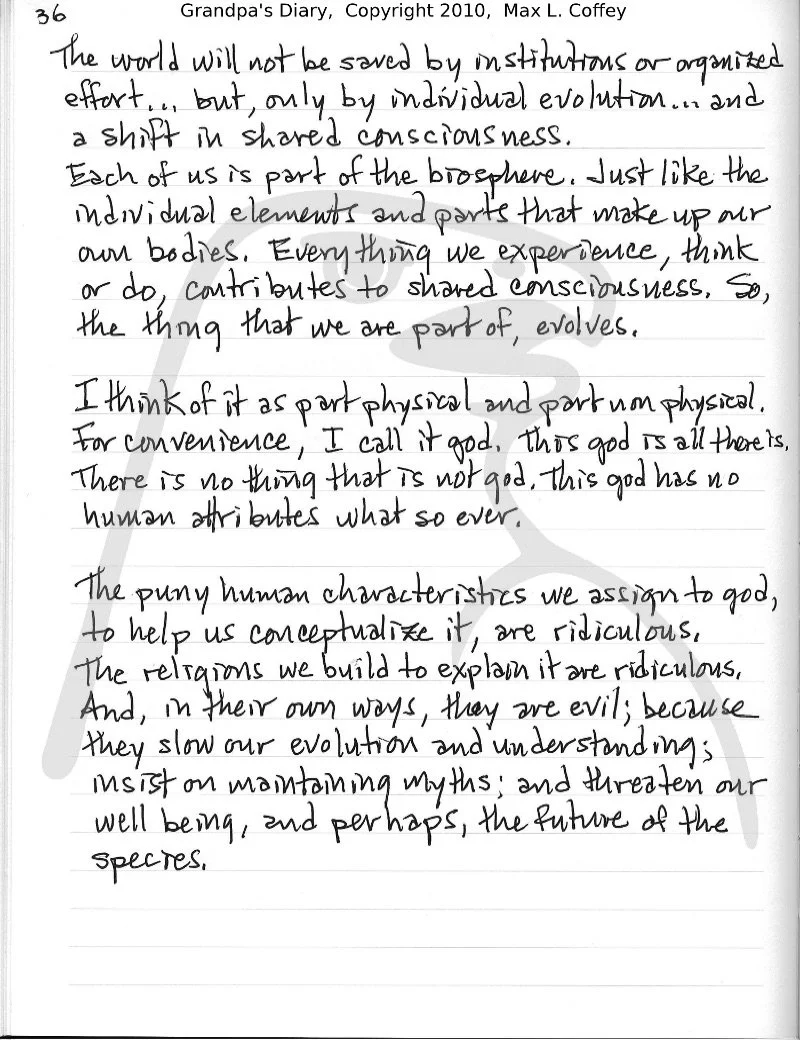 36
Grandpa's Diary, Copyright 2010, Max L. Coffey
The world will not be saved by institutions or organized
effort... but, only by individual evolution... and
a shift in shared consciousness.
Each of us is part of the biosphere. Just like the
individual elements and parts that make up our
own bodies. Everything we experience, think
or do, contributes to shared consciousness. So,
the thing that we are part of, evolves.
I think of it as part physical and part non physical.
For convenience, I call it god. This god is all there is.
There is no thing that is not god. This god has no
human attributes what so ever.
The puny human characteristics we assign to god,
to help us conceptualize it, are ridiculous.
The religions we build to explain it are ridiculous.
And, in their own ways, they are evil; because
they slow our evolution and understanding;
insist on maintaining myths; and threaten our
well being, and perhaps, the future of the
species.